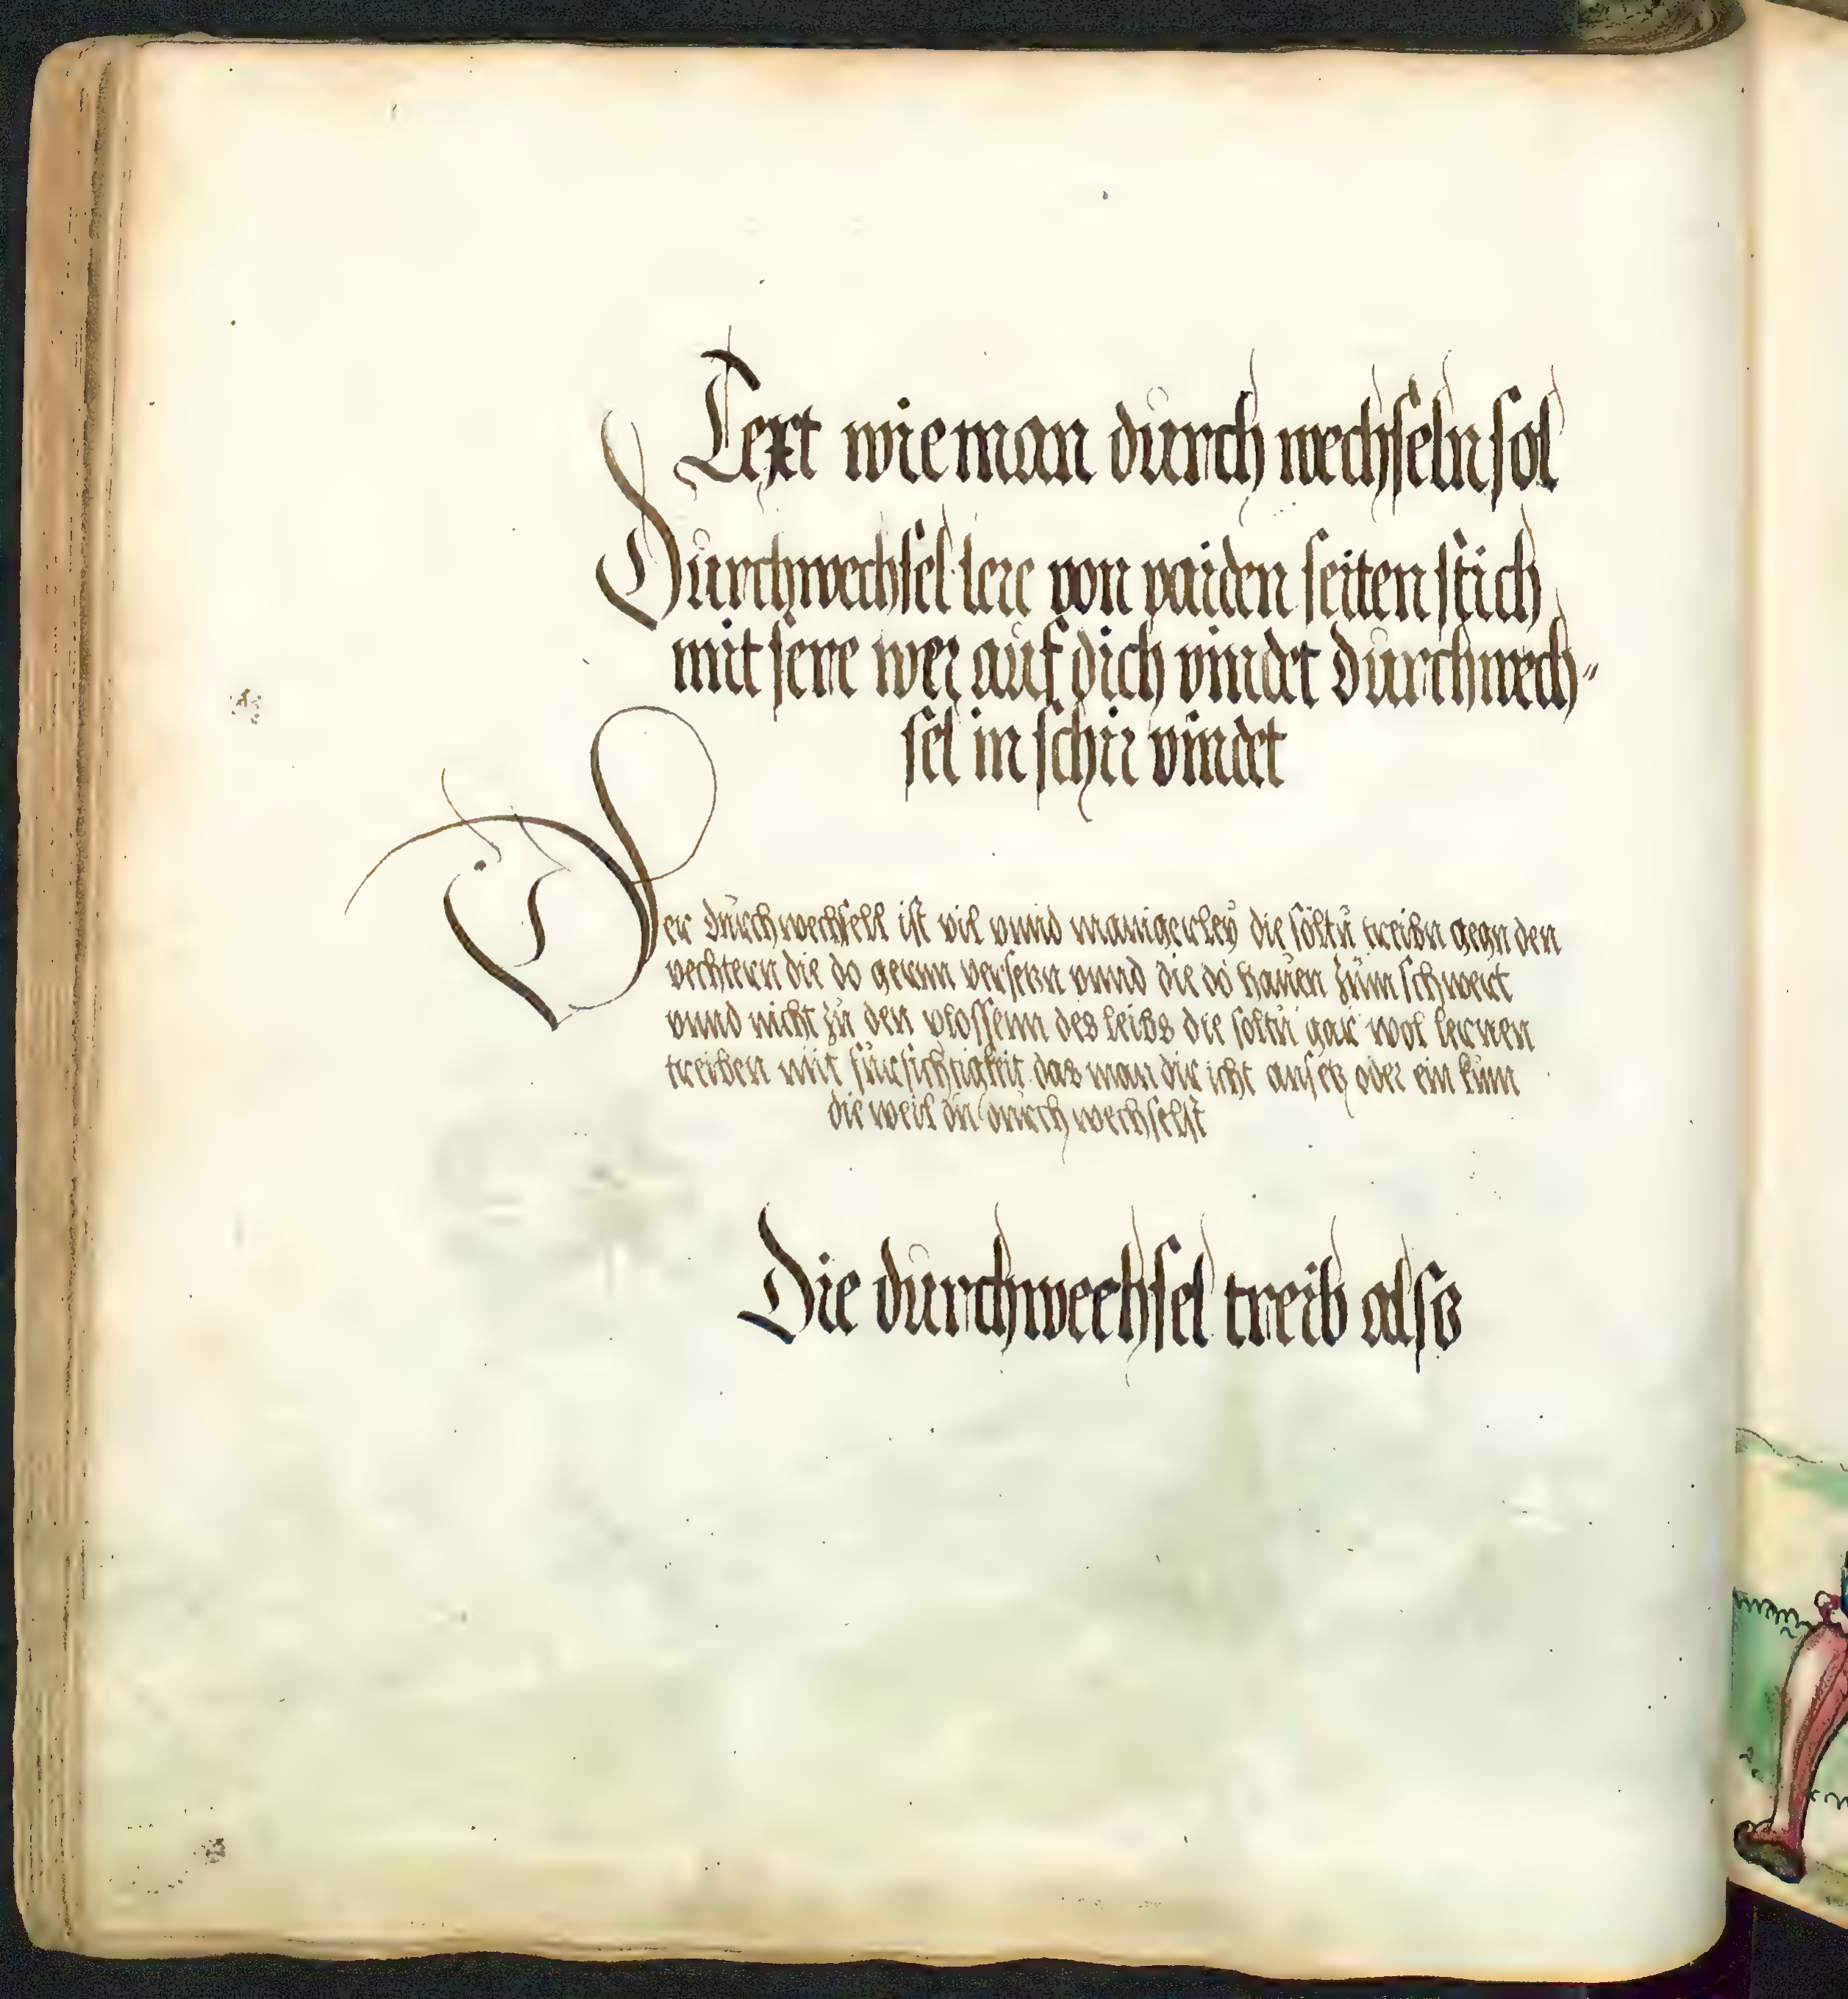 Text wie man durch wechseln sol
Durchwechsel lere von paiden seiten stich
mit sere wer auf dich vindet durchwech„
sel in schir vindet
Der durchwechsell ist vil vnnd manigerley die soltu treibn gegn den
vechtern die do gernn versetzn vnnd die do hauen zum schwert
vnnd nicht zu den plossenn des leibs die soltu gar wol lernen
treiben mit fursichtigkeit das man dir icht ansetz oder ein kum
die weil du durch wechselst
Die durchwechsel treib also